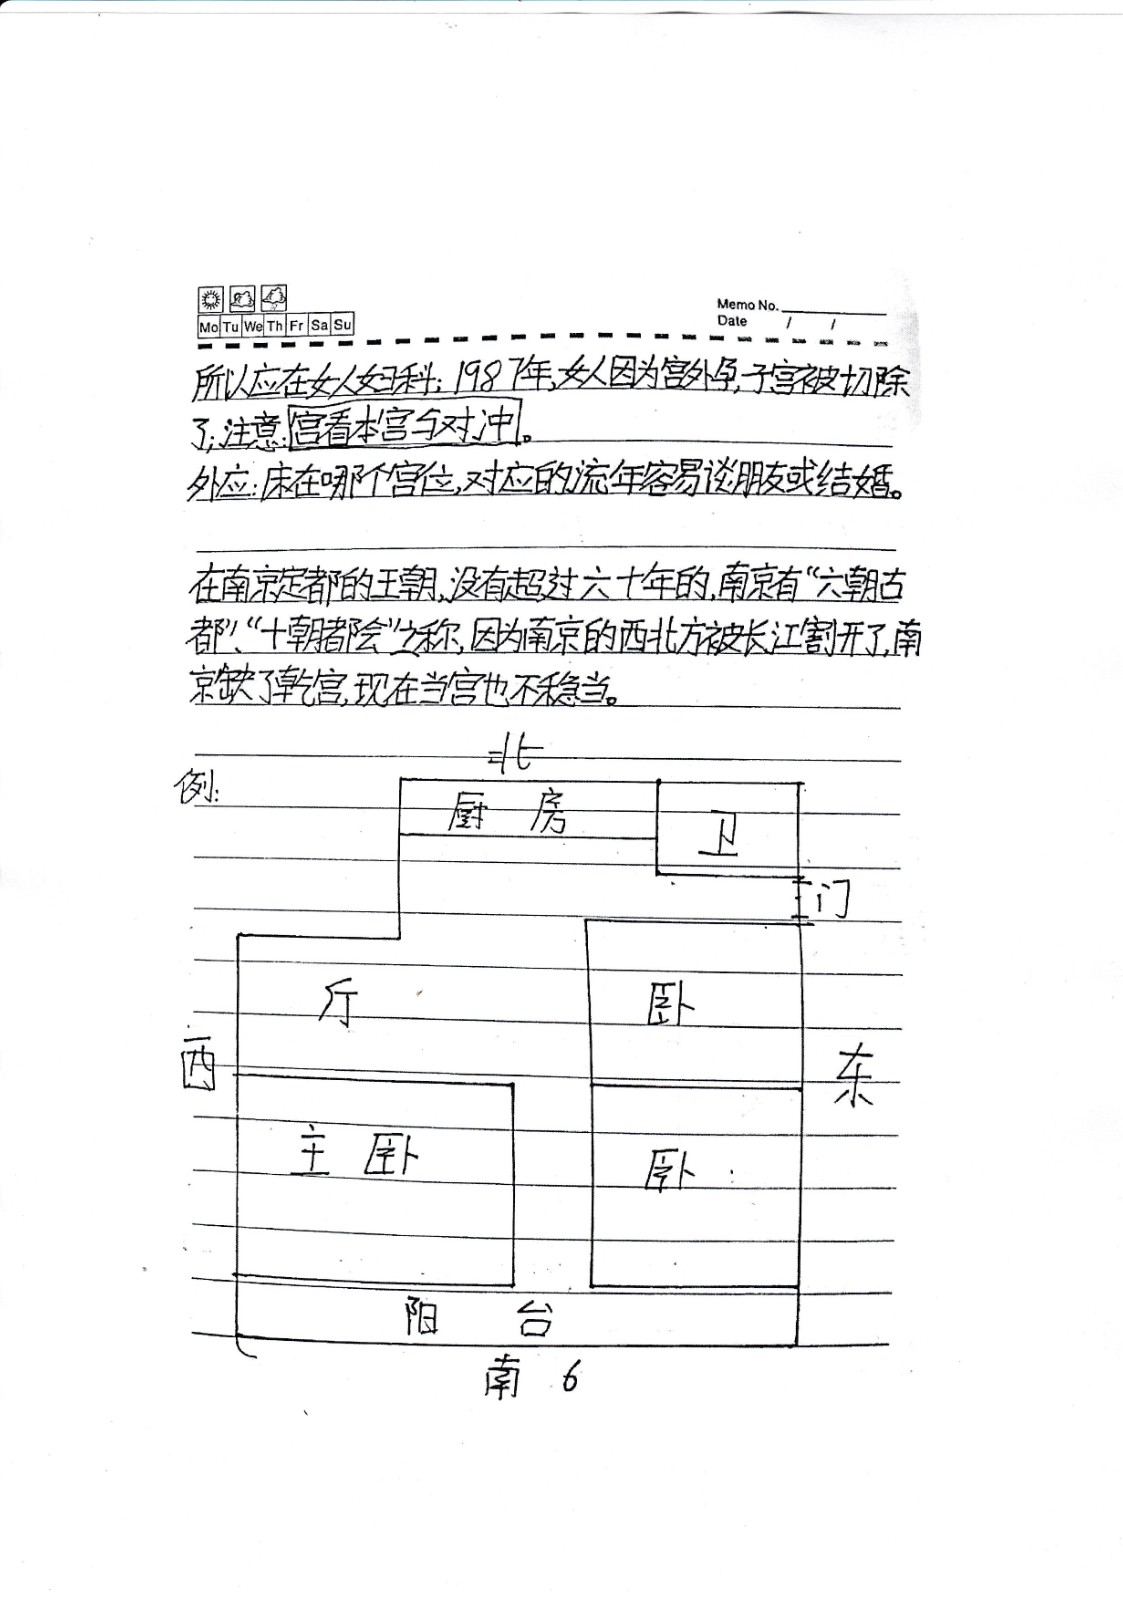 Mo Tu We Th Fr Sa Su
Memo No.
Date / /
所以应在女人妇科；1987年，女人因为宫外孕，子宫被切除
了；注意：宫看本宫与对冲。
外应：床在哪个宫位，对应的流年容易谈朋友或结婚。
在南京定都的王朝，没有超过六十年的，南京有“六朝古
都”、“十朝都会”之称，因为南京的西北方被长江割开了，南
京缺了乾宫，现在当宫也不稳当。
北
例：
厨 房
卫
门
厅
卧
西
东
主 卧
卧
阳 台
南 6